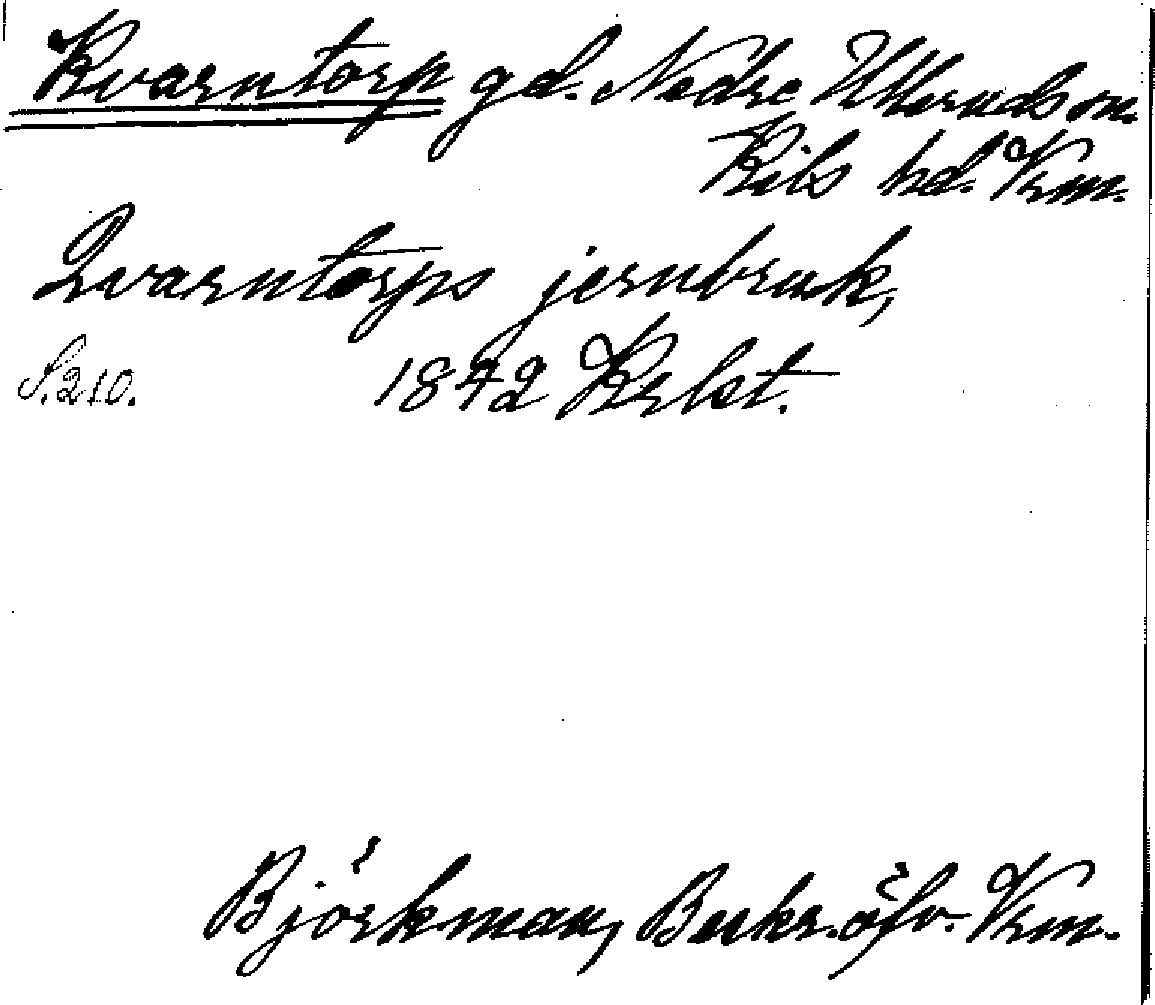 Kvarntorp gd. Nedre Ulleruds sn.
Kils hd. Vrm.
Qvarntorps jernbruk,
S. 210. 1842 Krlst.
Björkman, Beskr. öfv. Vrm.